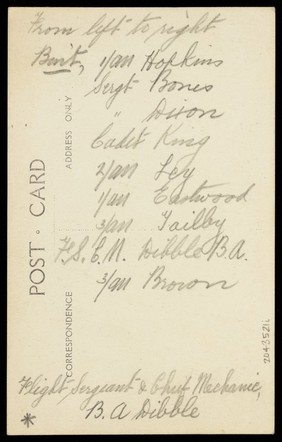 From left to right
Binit, 1/AM Hopkins
Sergt Bones
" Dixon
Cadet King
2/AM Ley
1/AM Eastwood
3/AM Tailby
F.S.C.M. Dibble B.A.
3/AM Brown
Flight Sergeant & Chief Mechanic,
B.A Dibble
*
POST CARD
CORRESPONDENCE
ADDRESS ONLY
2043521i